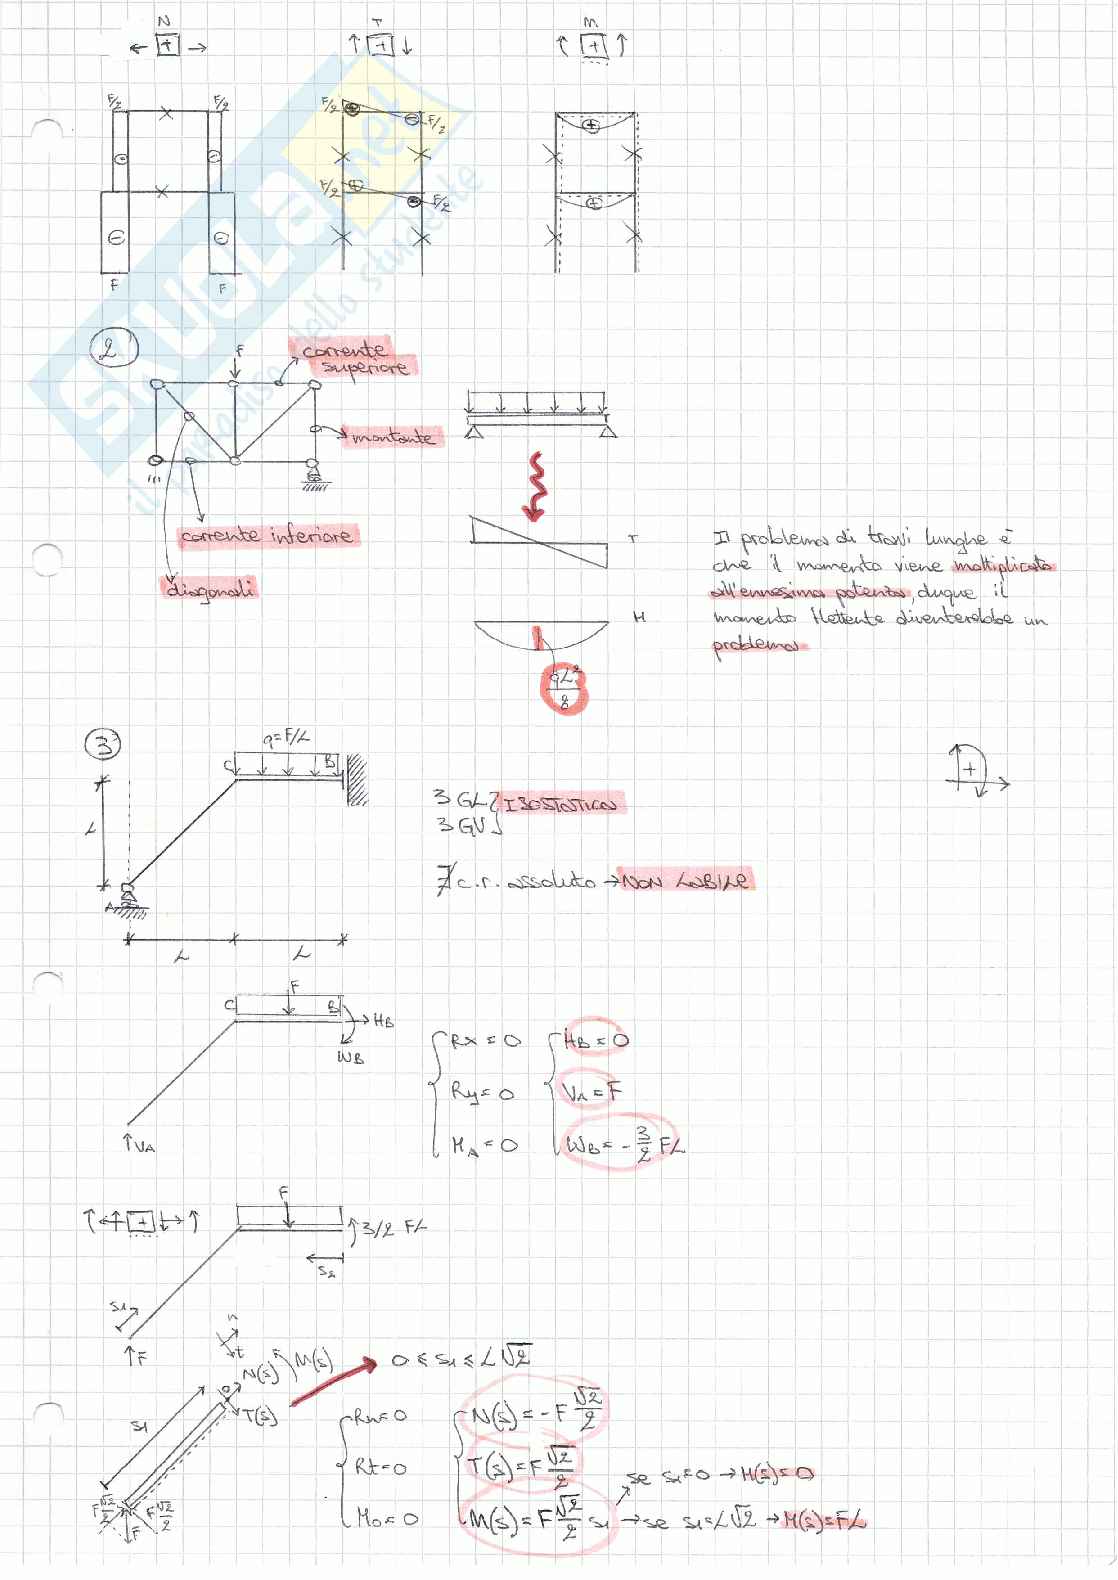 N T M
+ + +
F/2 F/2 F/2 F/2
F/2 F/2
F F
SKUOLA.net
il paradiso dello studente
2
F
corrente
superiore
montante
corrente inferiore
diagonali
T
M
qL²/8
Il problema di travi lunghe è
che il momento viene moltiplicato
all'ennesima potenza, duque il
momento flettente diventerebbe un
problema
3
q=F/L
C B
L
A
L L
3 GL } ISOSTATICA
3 GV
∄ c.r. assoluto → NON LABILE
+
F
C B
HB
WB
VA
Rx = 0 HB = 0
Ry = 0 VA = F
MA = 0 WB = - 3/2 FL
F
+
3/2 FL
S2
S1
F
n
t
N(s) M(s)
T(s)
S1
0 ≤ S1 ≤ L√2
F √2/2 F √2/2
F
Rn = 0 N(s) = -F √2/2
Rt = 0 T(s) = F √2/2
Mo = 0 M(s) = F √2/2 S1
se S1 = 0 → M(s) = 0
→ se S1 = L√2 → M(s) = FL